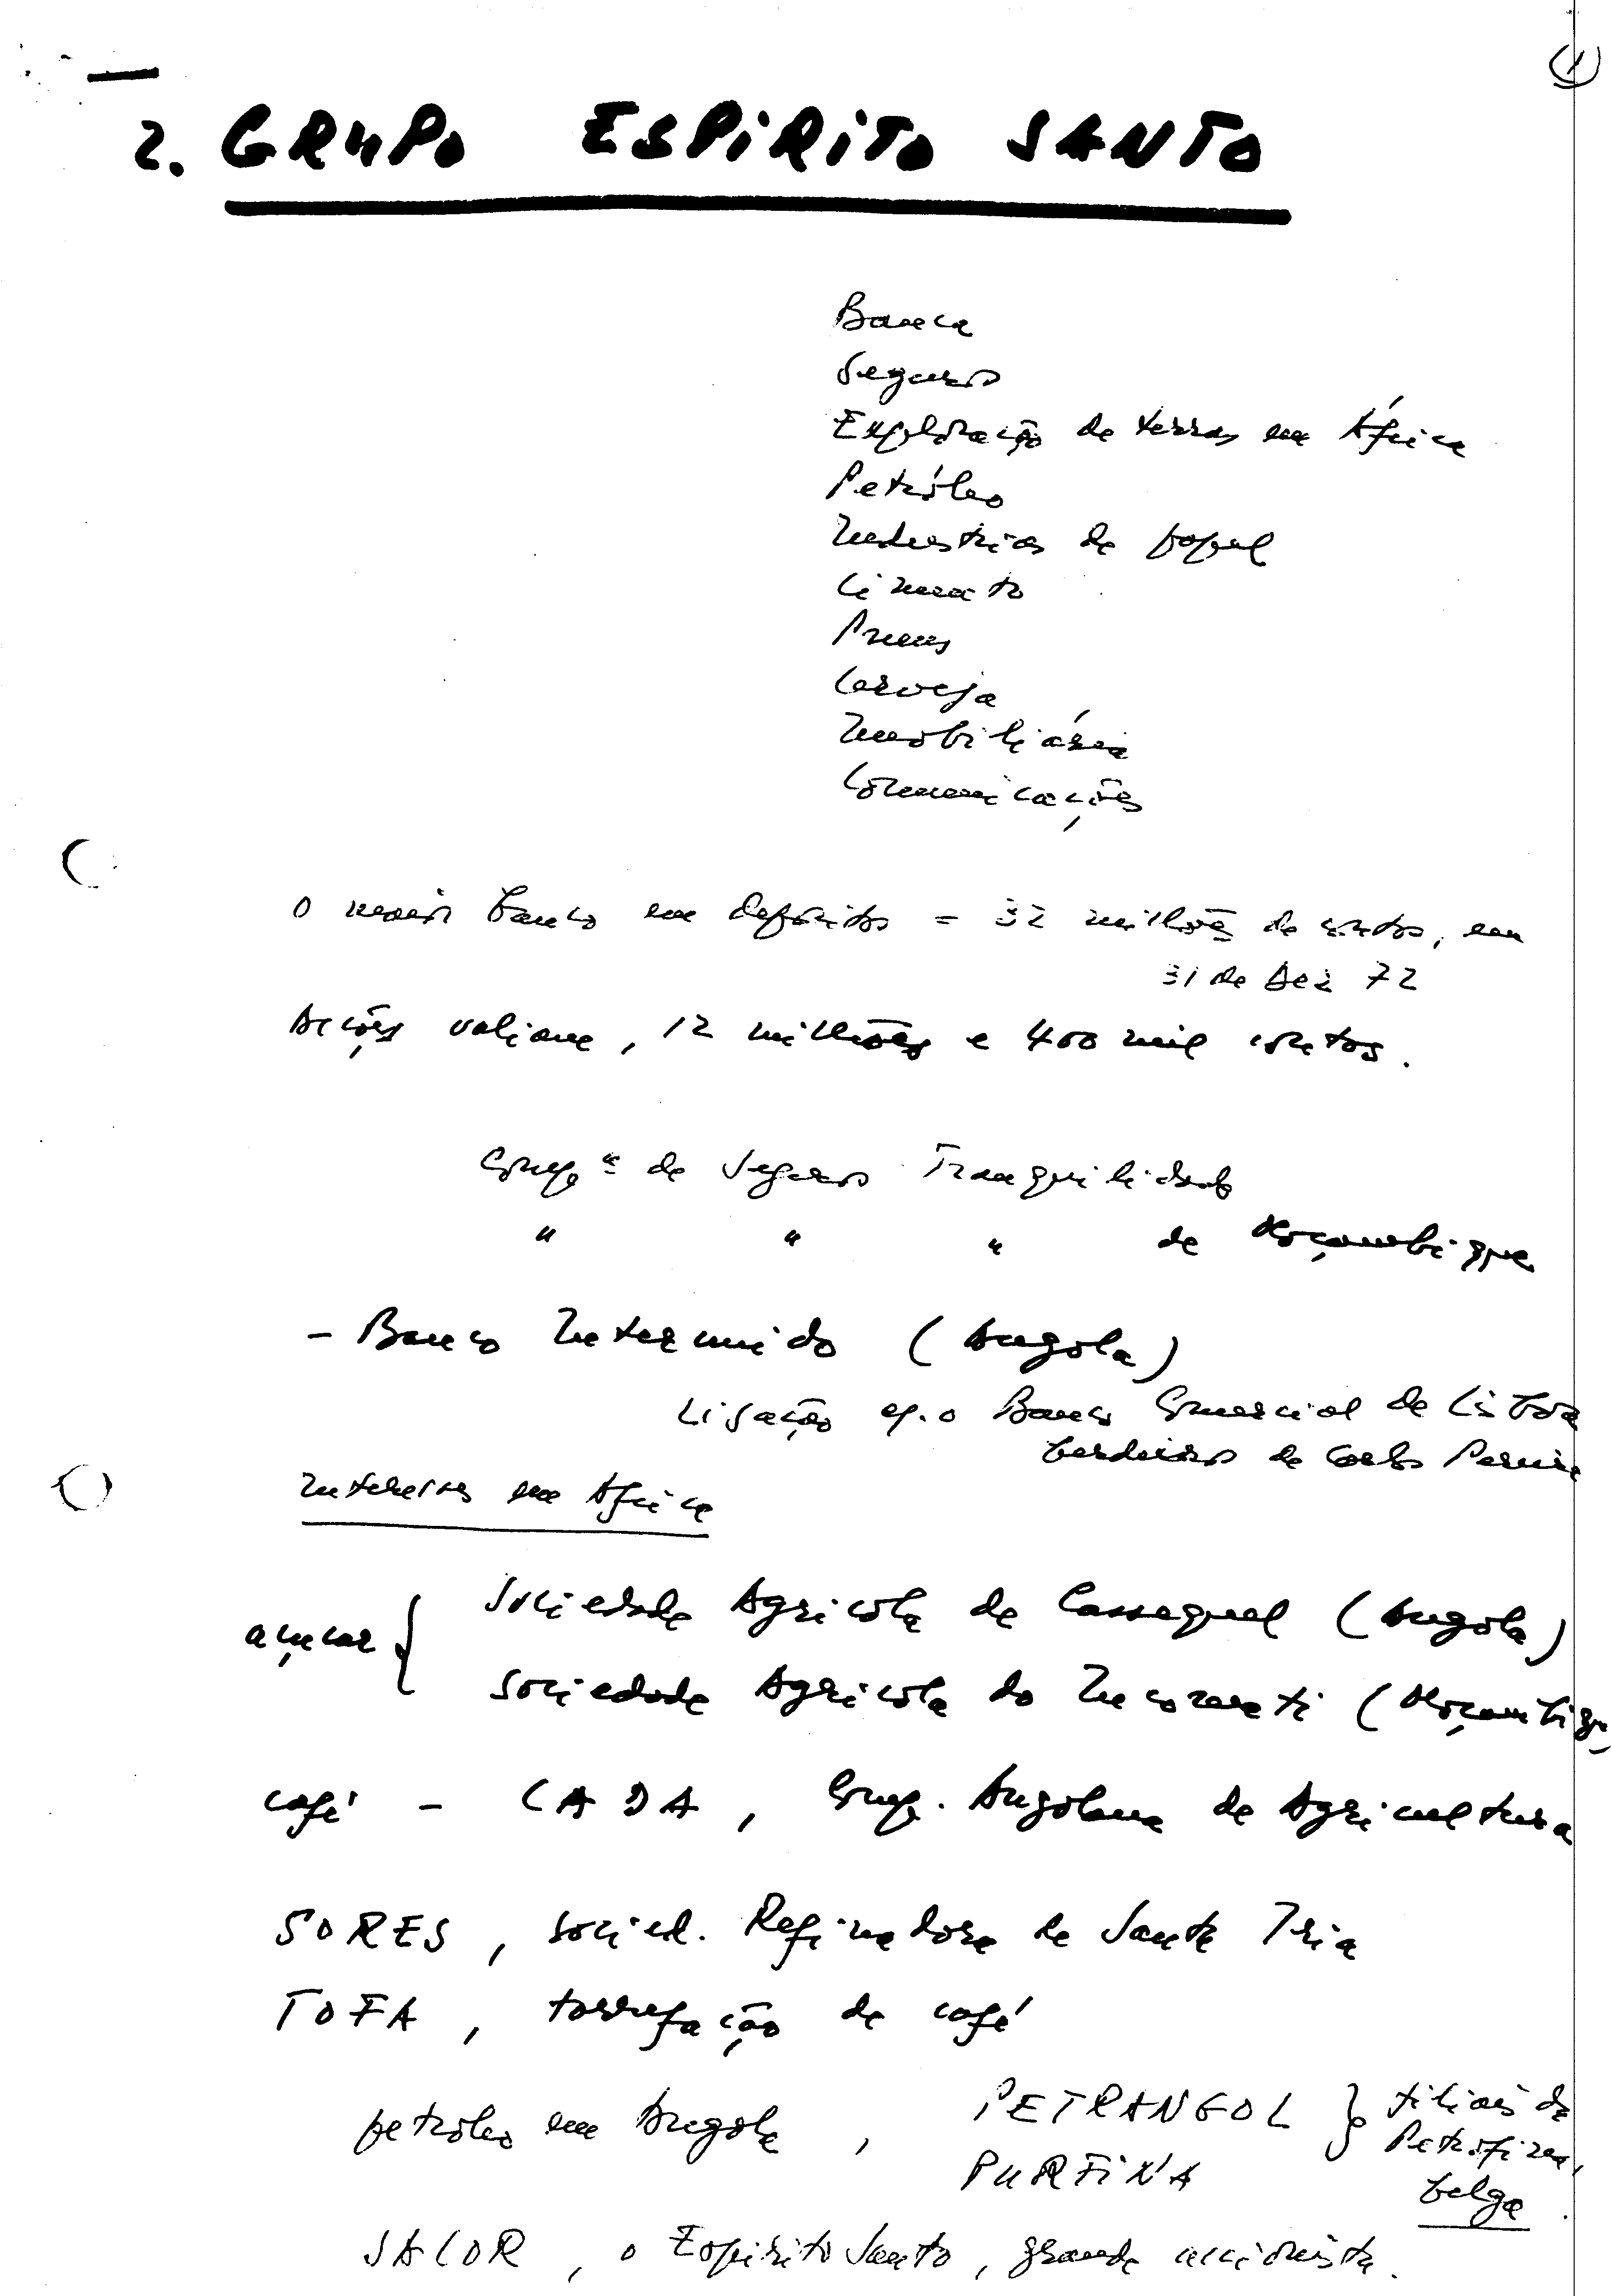 1
2. GRUPO ESPIRITO SANTO
Banca
Seguros
Exploração de terras em África
Petróleo
Industrias de papel
Cimento
Pneus
Cerveja
Imobiliária
Comunicações
O maior banco em depósitos = 32 milhões de contos, em
31 de Dez 72
Acções valiam, 12 milhões e 400 mil contos.
Compª de Seguros Tranquilidade
" " " de Moçambique
- Banco Interunido (Angola)
Ligação c/. o Banco Comercial de Lisboa
herdeiros de
Interesses em Africa
açucar { Sociedade Agricola de Cassequel (Angola)
Sociedade Agricola do Incomati (Moçambique
café - CADA, Comp. Angolana de Agricultura
SORES, socied. Refinadora de Santa Iria
TOFA, torrefação de café
petróleo em Angola, PETRANGOL } filiais da
PURFINA Petrofina,
belga.
SACOR, o Espirito Santo, grande accionista.